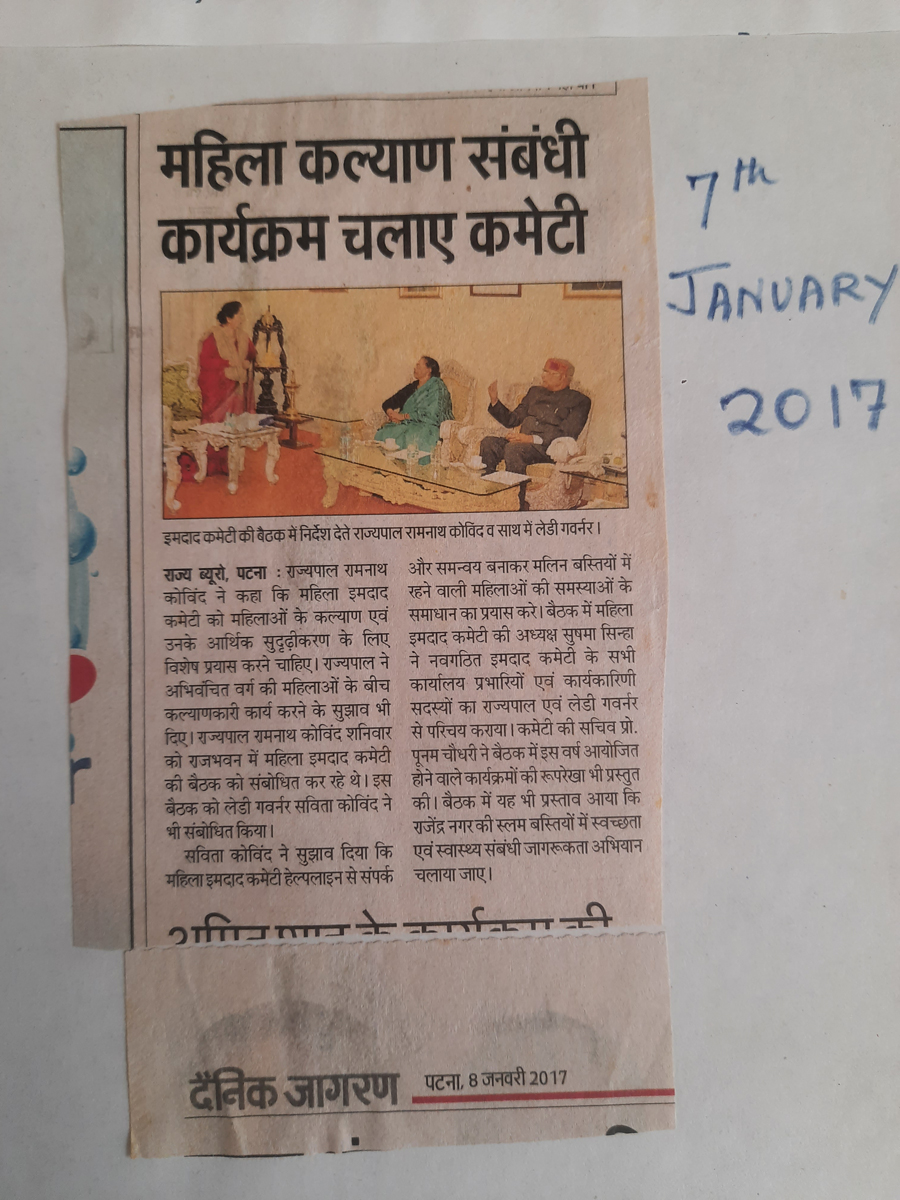 महिला कल्याण संबंधी
कार्यक्रम चलाए कमेटी
इमदाद कमेटी की बैठक में निर्देश देते राज्यपाल रामनाथ कोविंद व साथ में लेडी गवर्नर।
राज्य ब्यूरो, पटना : राज्यपाल रामनाथ
कोविंद ने कहा कि महिला इमदाद
कमेटी को महिलाओं के कल्याण एवं
उनके आर्थिक सुदृढ़ीकरण के लिए
विशेष प्रयास करने चाहिए। राज्यपाल ने
अभिवंचित वर्ग की महिलाओं के बीच
कल्याणकारी कार्य करने के सुझाव भी
दिए। राज्यपाल रामनाथ कोविंद शनिवार
को राजभवन में महिला इमदाद कमेटी
की बैठक को संबोधित कर रहे थे। इस
बैठक को लेडी गवर्नर सविता कोविंद ने
भी संबोधित किया।
सविता कोविंद ने सुझाव दिया कि
महिला इमदाद कमेटी हेल्पलाइन से संपर्क
और समन्वय बनाकर मलिन बस्तियों में
रहने वाली महिलाओं की समस्याओं के
समाधान का प्रयास करे। बैठक में महिला
इमदाद कमेटी की अध्यक्ष सुषमा सिन्हा
ने नवगठित इमदाद कमेटी के सभी
कार्यालय प्रभारियों एवं कार्यकारिणी
सदस्यों का राज्यपाल एवं लेडी गवर्नर
से परिचय कराया। कमेटी की सचिव प्रो.
पूनम चौधरी ने बैठक में इस वर्ष आयोजित
होने वाले कार्यक्रमों की रूपरेखा भी प्रस्तुत
की। बैठक में यह भी प्रस्ताव आया कि
राजेंद्र नगर की स्लम बस्तियों में स्वच्छता
एवं स्वास्थ्य संबंधी जागरूकता अभियान
चलाया जाए।
दैनिक जागरण पटना, 8 जनवरी 2017
7th
JANUARY
2017